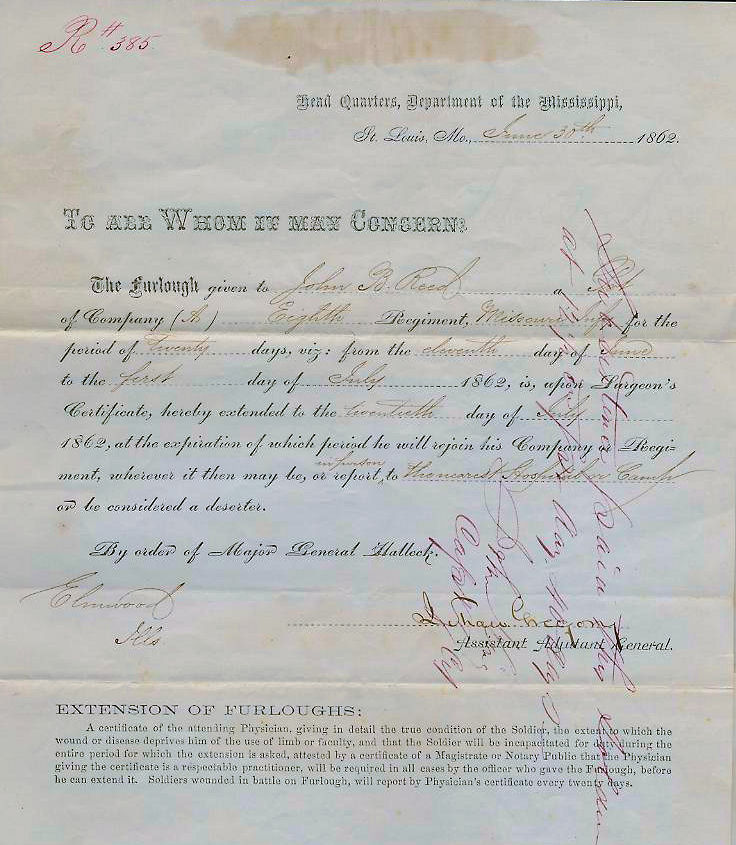 R # 385
Head Quarters, Department of the Mississippi,
St. Louis, Mo., June 30th 1862.
TO ALL WHOM IT MAY CONCERN:
The Furlough given to John B. Reed a
of Company (A) Eighth Regiment, Missouri for the
period of twenty days, viz: from the eleventh day of June
to the first day of July 1862, is, upon Surgeon's
Certificate, hereby extended to the twentieth day of July
1862, at the expiration of which period he will rejoin his Company or Regi-
in person
ment, wherever it then may be, or report, to the nearest Hospital or Camp
or be considered a deserter.
By order of Major General Halleck:
Elmwood
Ills
Assistant Adjutant General.
EXTENSION OF FURLOUGHS:
A certificate of the attending Physician, giving in detail the true condition of the Soldier, the extent to which the
wound or disease deprives him of the use of limb or faculty, and that the Soldier will be incapacitated for duty during the
entire period for which the extension is asked, attested by a certificate of a Magistrate or Notary Public that the Physician
giving the certificate is a respectable practitioner, will be required in all cases by the officer who gave the Furlough, before
he can extend it. Soldiers wounded in battle on Furlough, will report by Physician's certificate every twenty days.